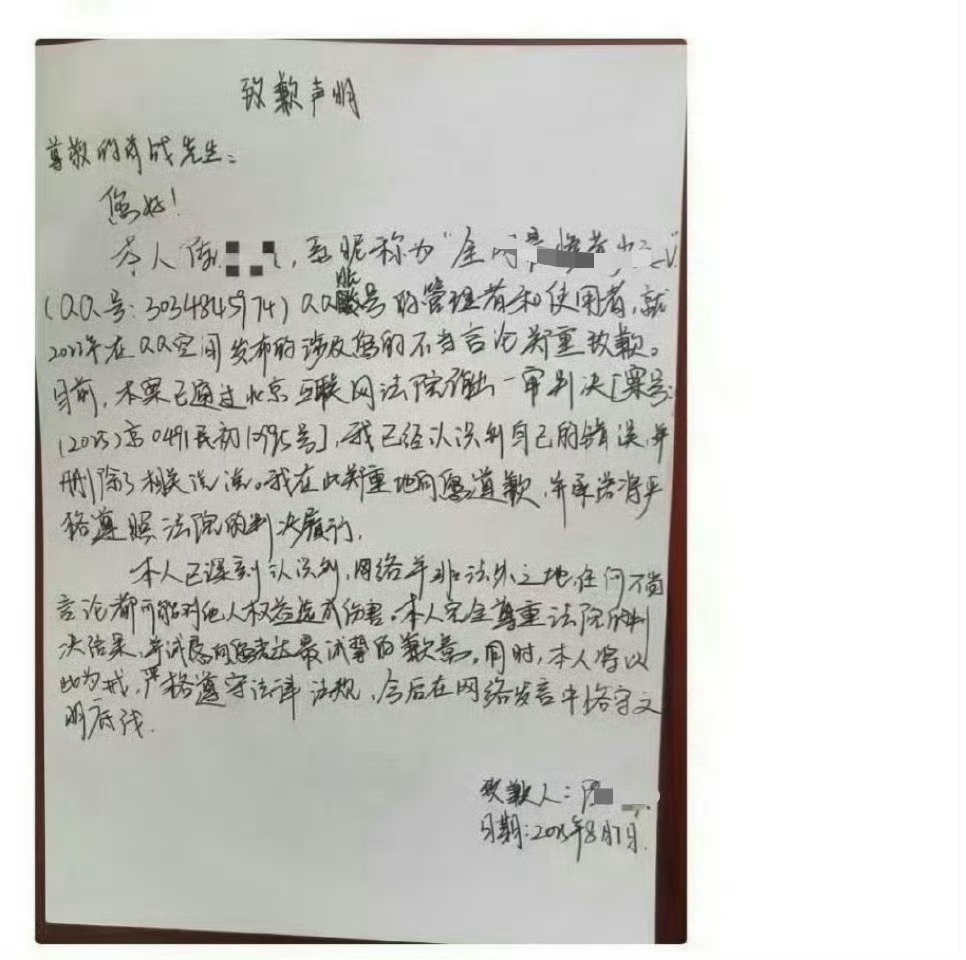 致歉声明
尊敬的肖战先生:
您好!
本人陈 ,系昵称为"金
(QQ号:3034845974)QQ账号的管理者和使用者,就
2023年在QQ空间发布的涉及您的不当言论郑重致歉。
目前,本案已通过北京互联网法院作出一审判决[案号:
(2025)京0491民初 号],我已经认识到自己的错误,并
删除了相关说法。我在此郑重地向您道歉,并承诺将严
格遵照法院的判决履行。
本人已深刻认识到,网络并非法外之地,任何不当
言论都可能对他人权益造成伤害。本人完全尊重法院的判
决结果,并诚恳向您表达最诚挚的歉意。同时,本人将以
此为戒,严格遵守法律法规,今后在网络发言中恪守文
明底线.
致歉人:陈
日期:2025年8月 日.